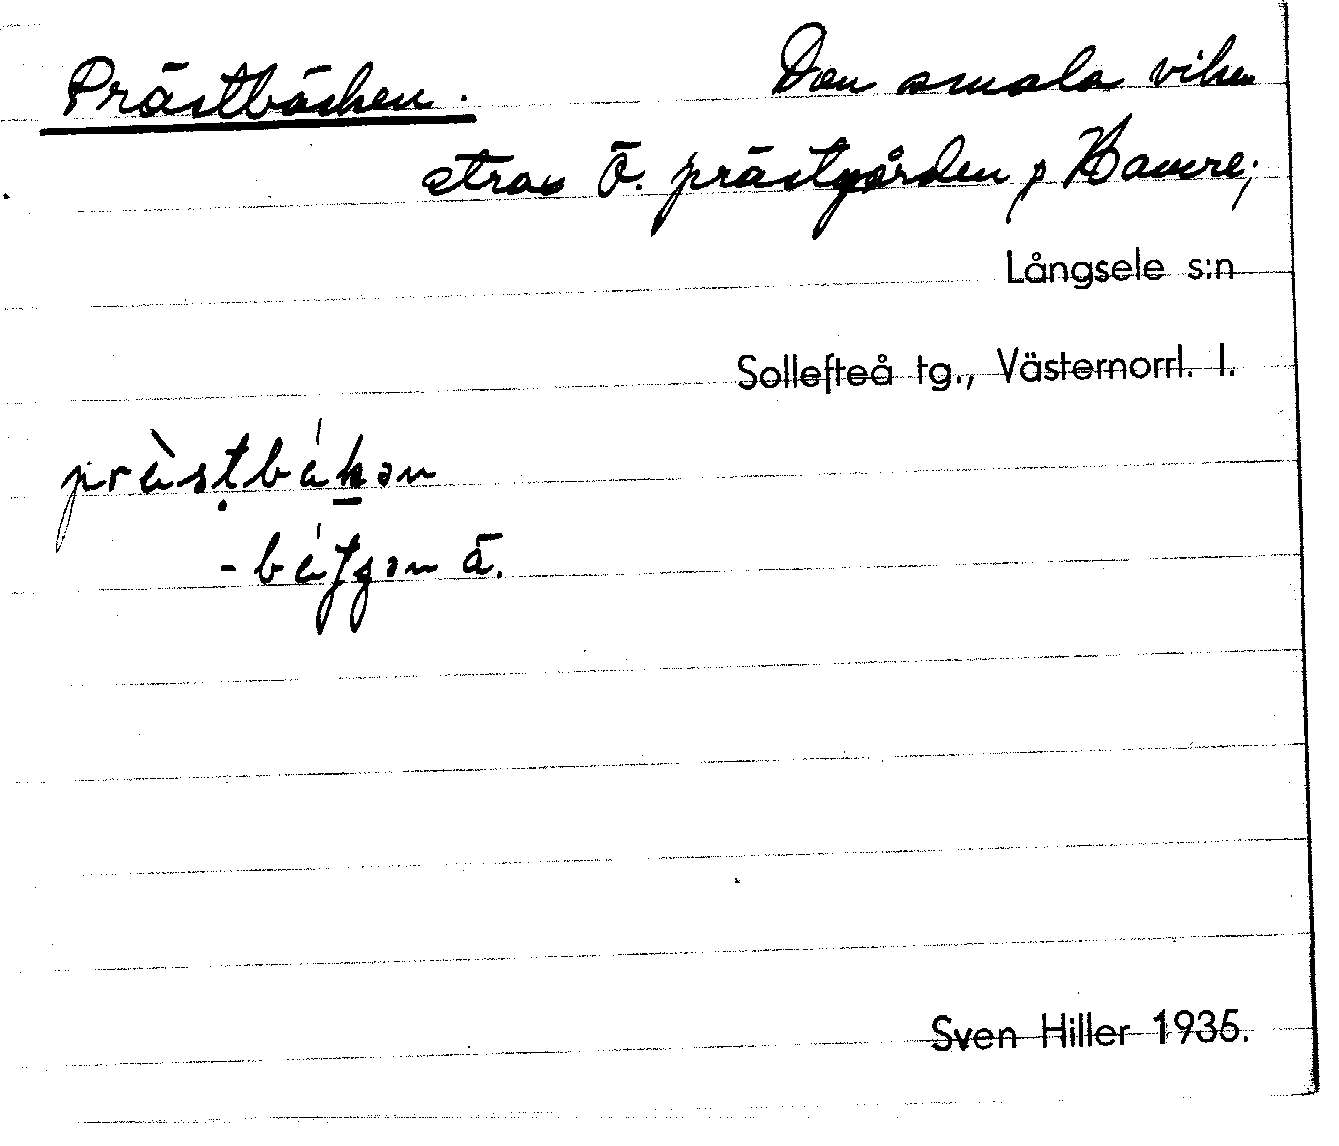 Prästbäcken. Den smala viken
strax Ö. prästgården, Hamre;
Långsele s:n
Sollefteå tg., Västernorrl. l.
Sven Hiller 1935.